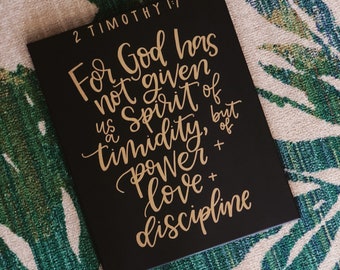 2 TIMOTHY 1:7
For God has
not given
us a spirit of
timidity, but of
power +
love +
discipline